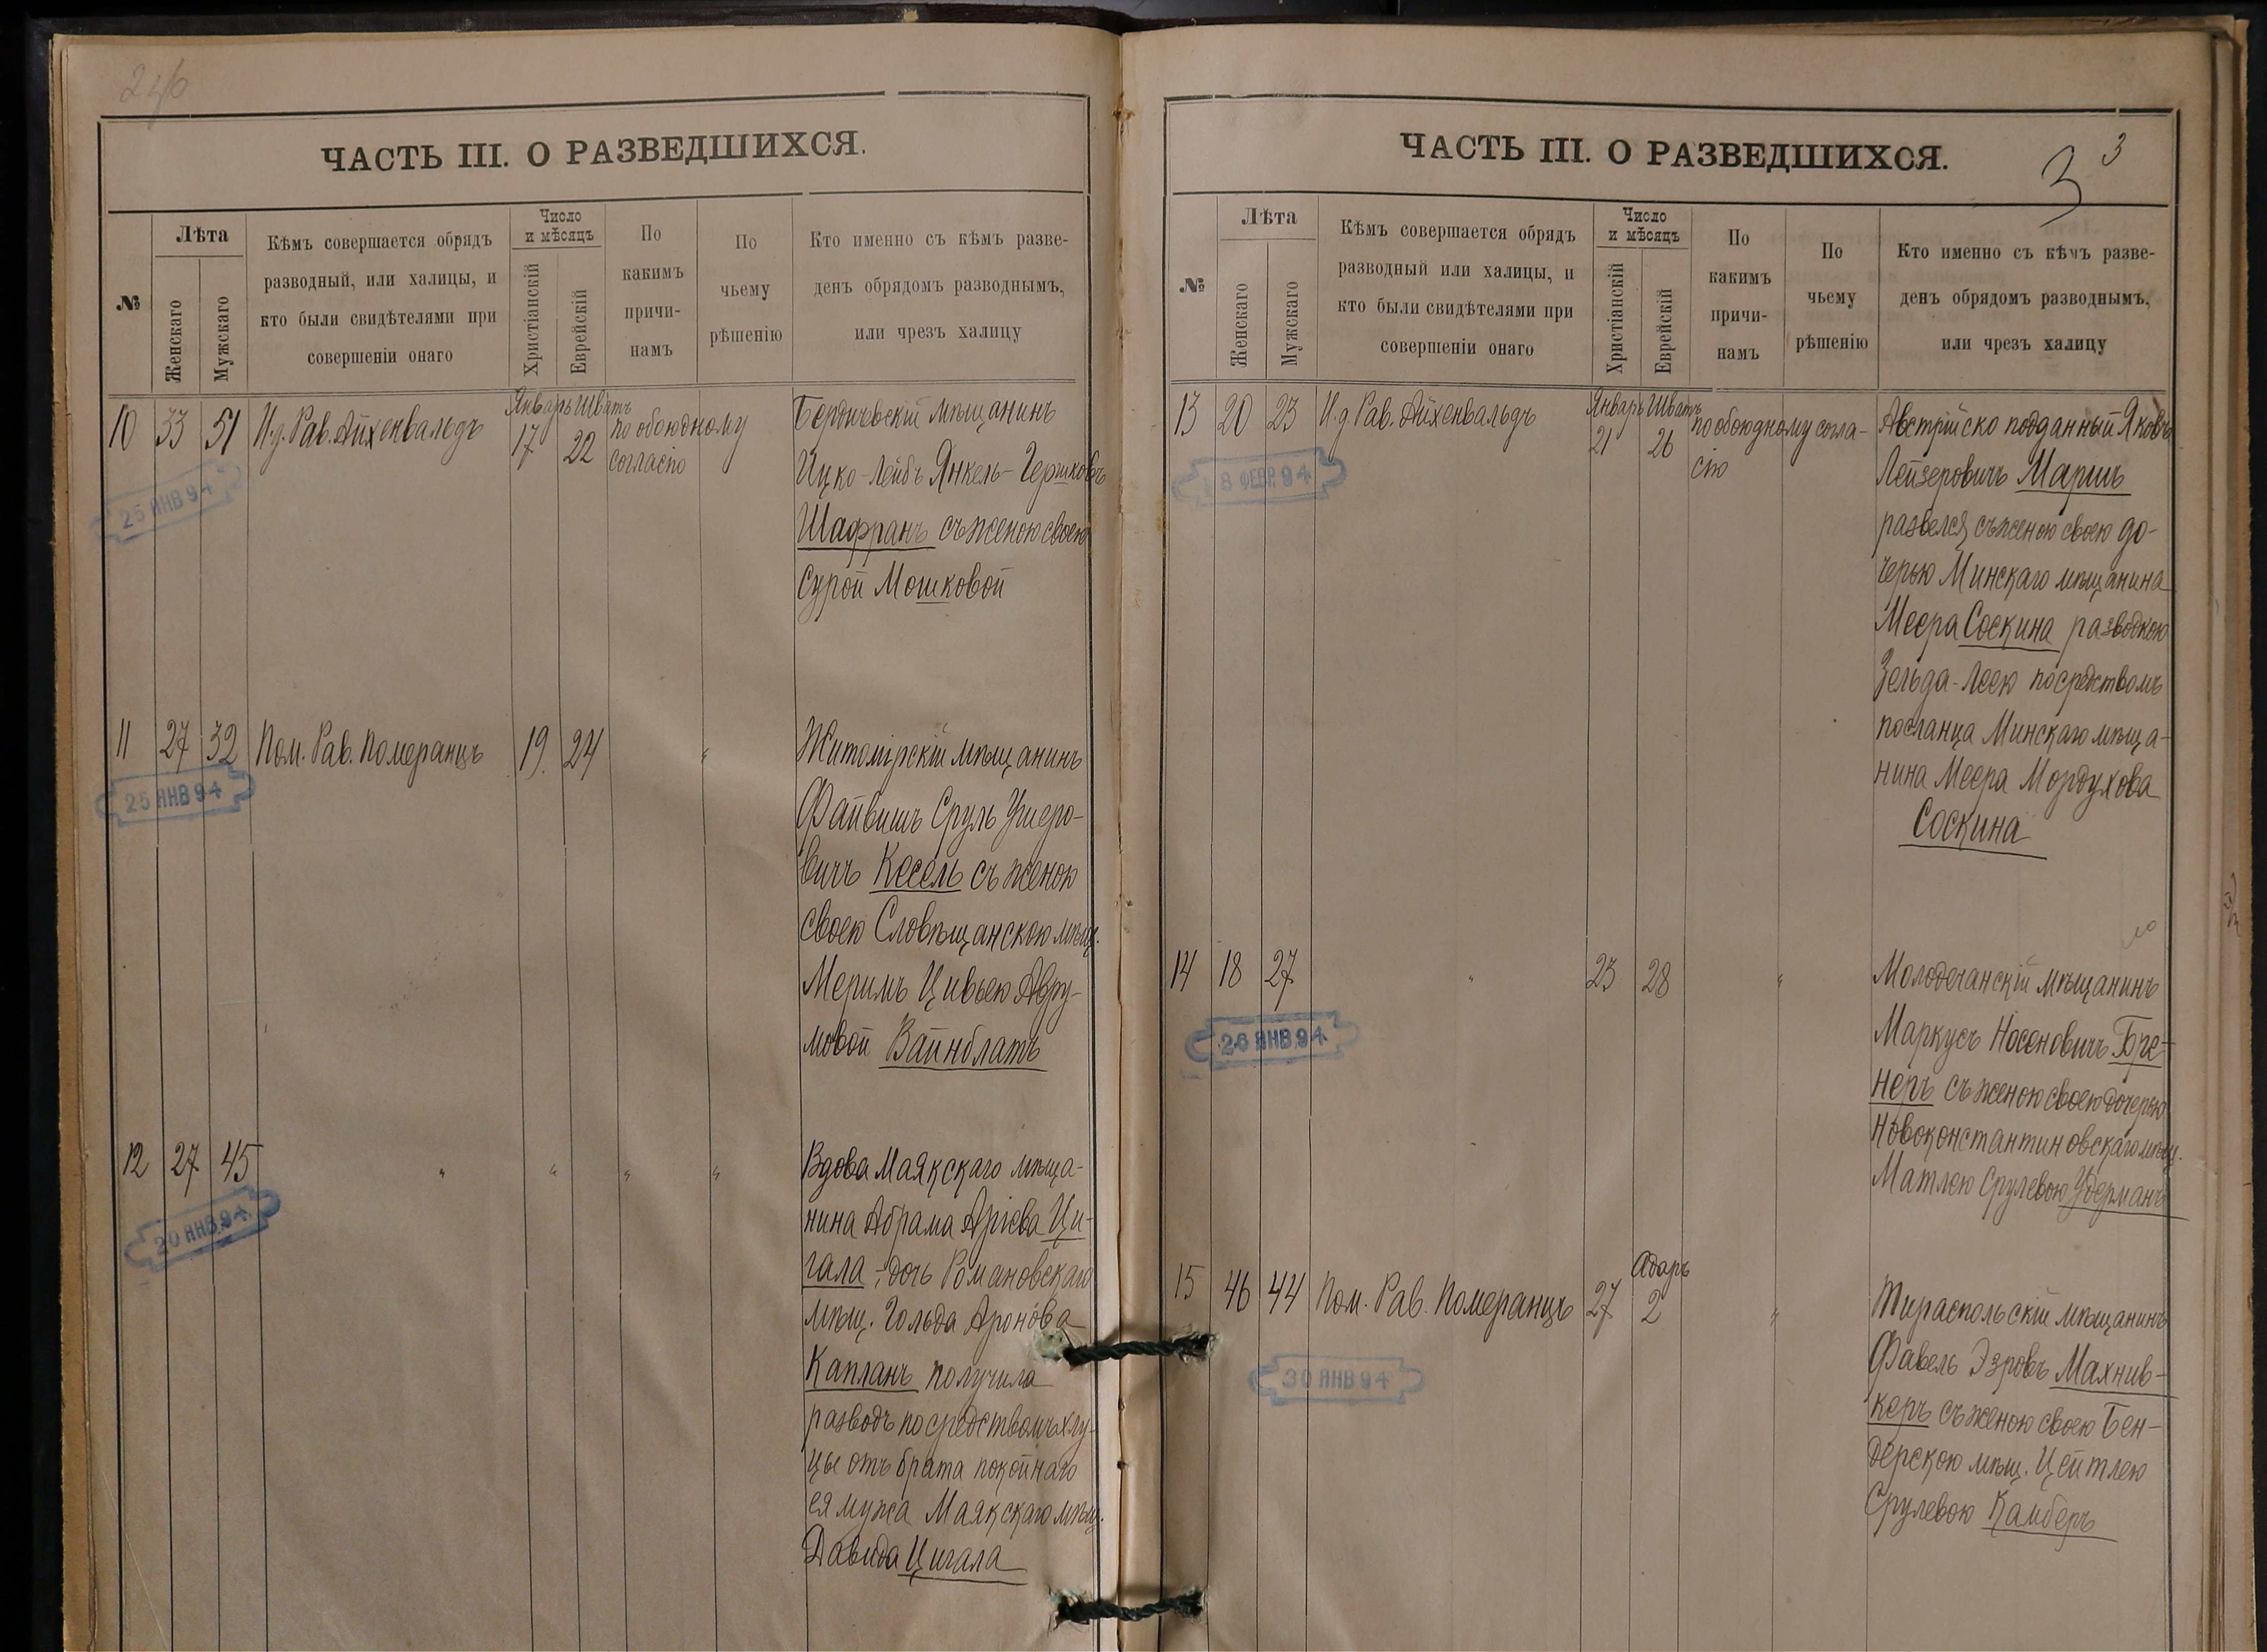 246
ЧАСТЬ III. О РАЗВЕДШИХСЯ.
№
Лѣта
Женскаго
Мужскаго
Кѣмъ совершается обрядъ
разводный, или халицы, и
кто были свидѣтелями при
совершеніи онаго
Число
и мѣсяцъ
Христіанскій
Еврейскій
По
какимъ
причи-
намъ
По
чьему
рѣшенію
Кто именно съ кѣмъ разве-
денъ обрядомъ разводнымъ,
или чрезъ халицу
Январь Шватъ
10 33 51 И.д. Рав. Айхенвальдъ 17 22 по обоюдному
согласію
Бердичевскій мѣщанинъ
Ицко-Лейбъ Янкель-Гершковъ
Шафранъ съ женою своею
Сурой Мошковой
25 ЯНВ 94
11 27 32 Пом. Рав. Померанцъ 19. 24 "
Житомірскій мѣщанинъ
Файвишъ Сруль Ушеро-
вичъ Кесель съ женою
своею Словѣщанскою мѣщ.
Меримъ Цивьею Авру-
мовой Вайнблатъ
25 ЯНВ 94
12 27 45 " " " "
Вдова Маякскаго мѣща-
нина Абрама Аріева Ци-
гала, дочь Романовскаго
мѣщ. Гольда Аронова
Капланъ получила
разводъ посредствомъ хлу-
цы отъ брата покойнаго
ея мужа Маякскаго мѣщ.
Давида Цигала
20 ЯНВ. 94
3 3
ЧАСТЬ III. О РАЗВЕДШИХСЯ.
№
Лѣта
Женскаго
Мужскаго
Кѣмъ совершается обрядъ
разводный или халицы, и
кто были свидѣтелями при
совершеніи онаго
Число
и мѣсяцъ
Христіанскій
Еврейскій
По
какимъ
причи-
намъ
По
чьему
рѣшенію
Кто именно съ кѣмъ разве-
денъ обрядомъ разводнымъ,
или чрезъ халицу
Январь Шватъ
13 20 23 И.д. Рав. Айхенвальдъ 21 26 по обоюдному согла-
сію
Австрійско подданный Яковъ
Лейзеровичъ Маришъ
развелся съ женою своею до-
черью Минскаго мѣщанина
Меера Соскина разводкою
Зельда-Леею посредствомъ
посланца Минскаго мѣща-
нина Меера Мордухова
Соскина
8 ФЕВР. 94
14 18 27 " 23 28 "
Молодечанскій мѣщанинъ
Маркусъ Носоновичъ Бре-
неръ съ женою своею дочерью
Новоконстантиновскаго мѣщ.
Матлею Срулевою Удерманъ
26 ЯНВ. 94
Адаръ
15 46 44 Пом. Рав. Померанцъ 27 2 "
Тираспольскій мѣщанинъ
Фавель Эзровъ Махнив-
керъ съ женою своею Бен-
дерскою мѣщ. Цейтлею
Срулевою Камберъ
30 ЯНВ 94